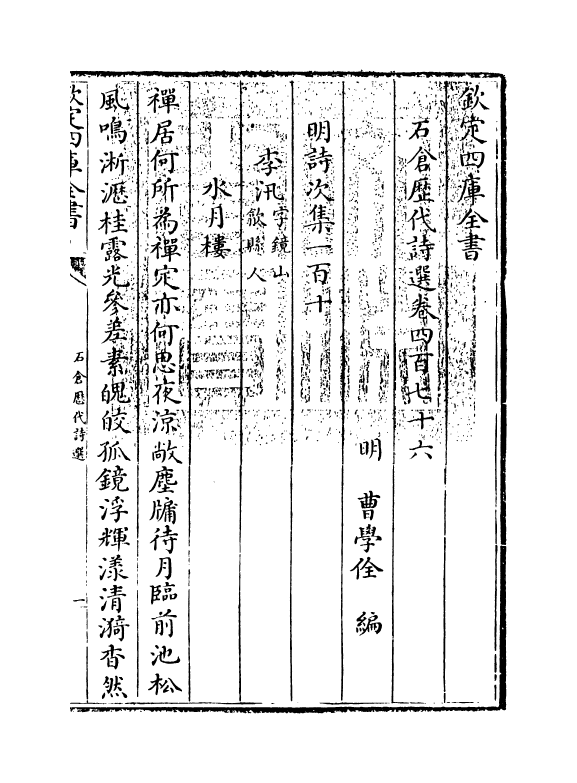 欽定四庫全書
石倉歴代詩選卷四百七十六
明 曹學佺 編
明詩次集一百十
李汛字鏡山歙縣人
水月樓
禪居何所為禪定亦何思夜涼敞塵牗待月臨前池松
風鳴淅瀝桂露光參差素魄皎孤鏡浮輝漾清漪杳然
欽定四庫全書
石倉歴代詩選
一